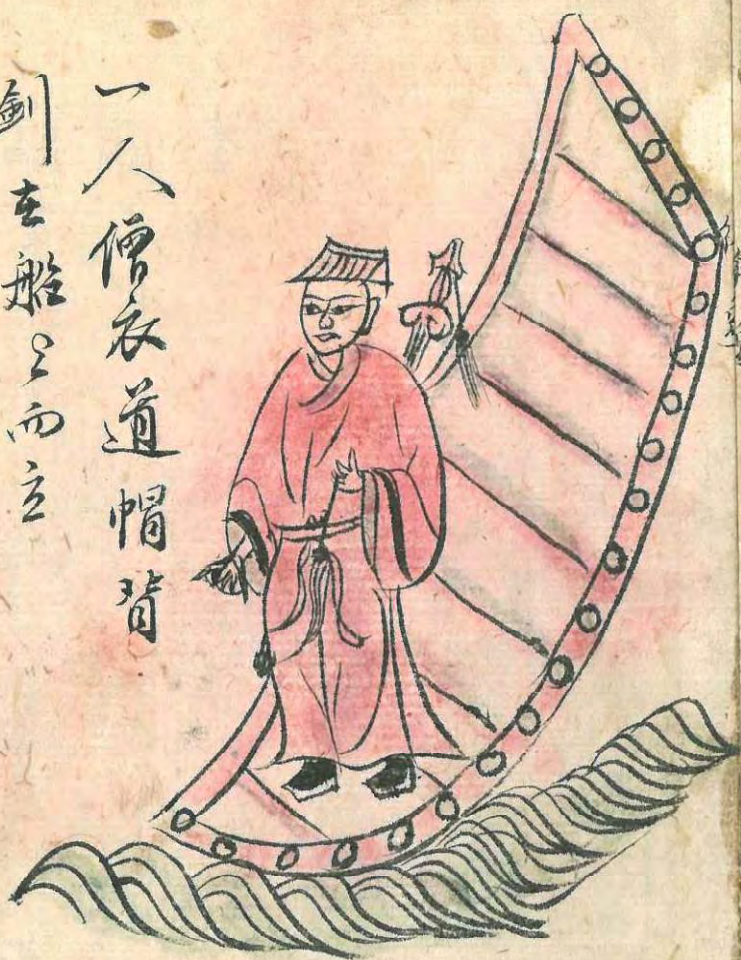 一人僧衣道帽背
劍在船上而立